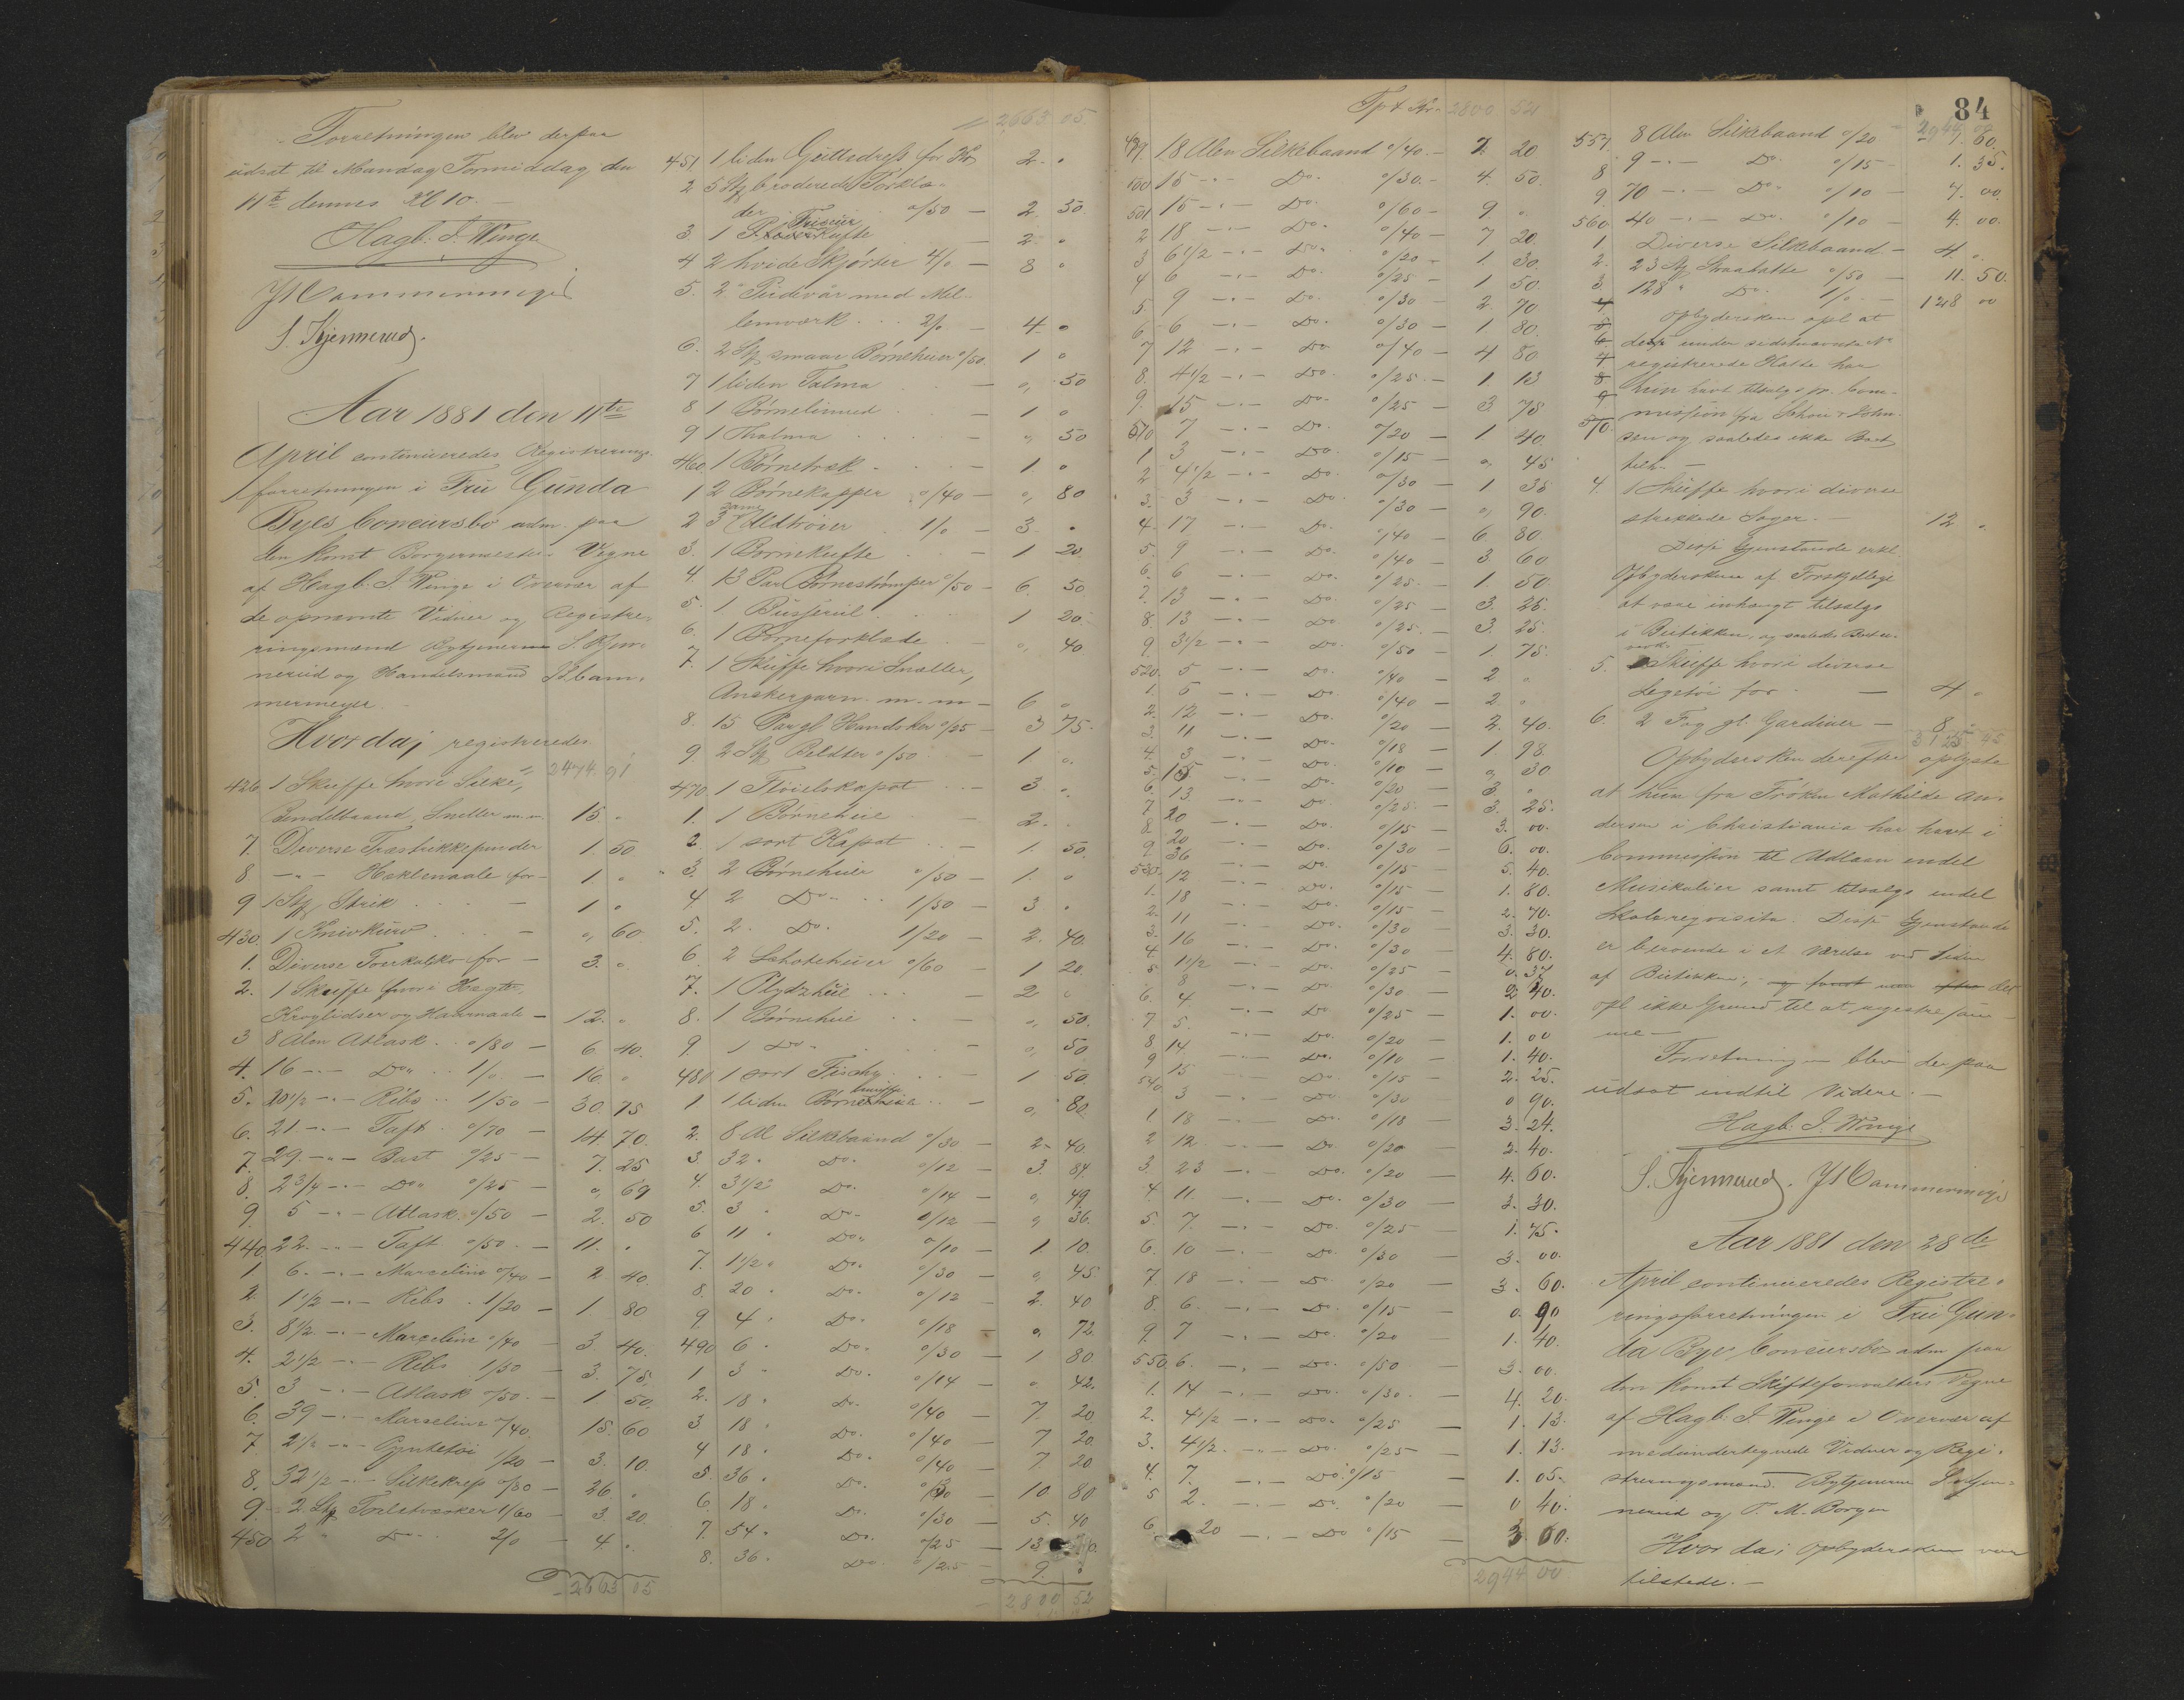 Forretningen blev derpaa
udsat til Mandag Formiddag den
11te dennes Kl 10. —
Hagb. J. Winge
J Cammermeyer
S. Kjennerud.
Aar 1881 den 11te
April continueredes Registrerings
forretningen i Frü Günda
Byes Concürsbo adm. paa
den konst Borgermesters Vegne
af Hagb. J. Winge i Overvær af
de opnævnte Vidner og Registre
ringsmænd Bytjener S. Kjen-
nerüd og Handelsmand J Cam-
mermeyer —
Hvorda; registreredes
2474 91
426 1 Skuffe hvori Silke,
Bendelbaand, Sneller m. m. 15 "
7. Diverse Træstrikkepinder 1. 50
8. —"— Heklenaale for — 1. "
9 1 Stk Strik — 1 "
430. 1 Knivkürv — " 60.
1. Diverse for — 3. "
2. 1 Skuffe hvori Hægter,
Kroglidser og Haarnaale — 12. "
3 8 Alen Atlask 0/80 — 6. 40.
4. 16 —"— Do 1/0 — 16. "
5. 20 1/2 —"— Ribs 1/50 — 30. 75
6. 21 —"— Taft 0/70 — 14. 70.
7. 29. —"— Bart 0/25 — 7. 25
8. 2 3/4 —"— Do 0/25 — " 69
9. 5 —"— Atlask 0/50 — 2. 50
440. 22. —"— Taft 0/50 — 11. "
1 6. —"— Marceline 0/40 — 2 40.
2. 1 1/2 —"— Ribs 1/20 — 1 80
3. 8 1/2 —"— Marceline 0/40 — 3. 40.
4. 2 1/2 —"— Ribs 1/50 — 3. 75.
5. 3 —"— Atlask 0/50 — 1 50.
6. 39 —"— Marceline 0/40 15. 60
7 2 1/2 —"— Pyntetøi 1/20 — 3. 10.
8. 32 1/2 —"— Silkekrep 0/80 — 26 "
9. 2 Stk 1/60 — 3. 20.
450 2 " Do 2/0 — 4 "
2663 05
2663 05
451. 1 liden Güttedress for Kr 2. "
2 5 Stk broderede Forklæ-
der 0/50 — 2. 50.
3. 1 Friseür kufte — 2. "
4 2 hvide Skjørter 4/0 — 8 "
5. 2 " Püdevár med Mel-
lemværk 2/0 — 4. "
6. 2 Stk smaa Børnehüer 0/50. 1 "
7 1 liden Talma — " 50
8 1 Børnelinned — 1 "
9 1 Thalma — " 50
460 1 Børnetræk — 1. "
1 2 Børnekapper 0/40 — " 80
2 3 smaa Uldtrøier 1/0 — 3. "
3. 1 Børnekufte — 1 20.
4. 13 Par Børnestrømper 0/50 — 6. 50
5. 1 1 20.
6. 1 Børneforklæde — " 40
7. 1 Skuffe hvori Sneller,
Ankergarn m. m — 6 "
8. 15 Par gl. Handsker 0/25 — 3 75.
9 2 Stk Belter 0/50 — 1 "
470. 1 Fløielskapot — 3 "
1. 1 Børnehüe — 2. "
2. 1 sort Kapot — 1. 50.
3. 2 Børnehüer 0/50 — 1. "
4. 2 Do 1/50 — 3 "
5. 2. Do. 1/20 — 2. 40.
6. 2 0/60 — 1 20.
7. 1 Plydshüe — 2 "
8. 1 Børnehüe — " 50.
9. 1 Do — " 50
480 1 sort Fischy — 1 50.
1. 1 liden Børne — " 80
2. 8 Al Silkebaand 0/30 — 2. 40.
3. 32 " Do. 0/12 — 3. 84.
4. 3 1/2 " Do. 0/14 — " 49.
5. 3 " Do. 0/12 — " 36.
6 11 " Do 0/10 — 1. 10.
7. 1 1/2 " Do. 0/30 — " 45
8. 20 " Do. 0/12 — 2. 40
9 4 " Do. 0/18 — " 72
490 6 " Do. 0/30 — 1 80
1 3 " Do. 0/14 — " 42.
2. 18 " Do. 0/40 — 7. 20
3 18 " Do. 0/40 — 7. 20
4 18 " Do. 0/40 — 7. 20
5. 36 " Do. 0/30 — 10 80
6. 18 " Do. 0/30 — 5. 40
7. 54 " Do. 0/25 — 13
8. 36 " Do. 0/25 — 9. "
2800 52
84
Tpt Kr. 2800 52
499. 18 Alen Silkebaand 0/40 — 7. 20
500 15 —"— Do. 0/30 — 4. 50.
501 15 —"— Do. 0/60 — 9 "
2 18 —"— Do. 0/40 — 7 20.
3 6 1/2 —"— Do. 0/20 — 1 30.
4 6 —"— Do. 0/25 — 1 50.
5. 9 —"— Do. 0/30 — 2. 70
6 6 —"— Do. 0/30 — 1 80.
7 12 —"— Do. 0/40 — 4 80
8. 4 1/2 —"— Do. 0/25 — 1. 13
9. 15 —"— Do. 0/25 — 3. 75
510 7 —"— Do. 0/20 — 1 40.
1 3 —"— Do. 0/15 — " 45
2 4 1/2 —"— Do. 0/30 — 1 35
3. 3 —"— Do. 0/30 — " 90.
4. 17 —"— Do. 0/40 — 6. 80
5. 9 —"— Do. 0/40 — 3. 60
6. 6 —"— Do. 0/25 — 1 50.
7. 13 —"— Do. 0/25 — 3. 25.
8. 13 —"— Do. 0/25 — 3. 25.
9. 3 1/2 —"— Do. 0/50 — 1. 75.
520. 5 —"— Do. 0/40 — 2. "
1. 5 —"— Do. 0/40 — 2. "
2. 12 —"— Do. 0/20 — 2. 40.
3. 11 —"— Do. 0/18 — 1. 98
4. 3 —"— Do. 0/10 — " 30
5. 15 —"— Do. 0/20 — 3. "
6. 13 —"— Do. 0/25 — 3. 25.
7 20 —"— Do. 0/15 — 3. 00.
8. 20 —"— Do. 0/30 — 6. 00.
9 36 —"— Do. 0/15 — 5. 40.
530 12 —"— Do. 0/15 — 1. 80.
1. 18 —"— Do. 0/15 — 2. 70.
2. 11 —"— Do. 0/30 — 3. 30.
3. 16 —"— Do. 0/30 — 4. 80.
4 1 1/2 —"— Do. 0/25 — 0. 37
5 8 —"— Do. 0/30 — 2 40.
6. 4 —"— Do. 0/25 — 1. 00.
7 5 —"— Do. 0/20 — 1. 00
8 14 —"— Do. 0/10 — 1. 40.
9 15 —"— Do. 0/15 — 2. 25.
540 3 —"— Do. 0/30 — 0 90.
1 18 —"— Do. 0/18 — 3. 24.
2 12 —"— Do 0/20 — 2. 40.
3. 23 —"— Do. 0/20 — 4. 60.
4. 11 —"— Do. 0/30 — 3. 30.
5. 7. —"— Do. 0/25 — 1. 75.
6. 10 —"— Do. 0/30 — 3. 00.
7. 18 —"— Do. 0/20 — 3. 60.
8. 6. —"— Do. 0/15 — 0. 90
9. 7 —"— Do. 0/20 — 1. 40.
550. 6. —"— Do. 0/50 — 3. 00.
1. 14 —"— Do. 0/30 — 4. 20.
2. 4 1/2 —"— Do. 0/25 — 1. 13.
3. 4 1/2 —"— Do. 0/25 — 1. 13.
4. 7. —"— Do. 0/15 — 1. 05.
5 2. —"— Do. 0/20 — 0 40.
6. 20 —"— Do 0/15 — 3. 00.
2944 00
2944 00
557. 8 Alen Silkebaand 0/20 — 1. 60.
8 9 —"— Do. 0/15 — 1. 35.
9. 70 —"— Do. 0/10 — 7. 00.
560. 40 —"— Do. 0/10 — 4. 00.
1. Diverse Silkebaand — 4. "
2. 23 Stk Straahatte 0/50 — 11. 50.
3. 128 " Do. 1/0 — 128 00
4 Opbydersken opl at
5 disse under sidstnævnte No
6. registrerede Hatte har
7 hün havt tilsalgs pr. Com-
8 mission fra Schou & John-
9 sen og saaledes ikke Boet
570. tilh. —
4. 1 Skuffe hvori diverse
strikkede Sager. — 12 "
Disse Gjenstande erkl.
Opbydersken af Forskjellige
at være indbragt tilsalgs
i Bütikken, og saaledes Boet u-
vedk.
5. Skuffe hvori diverse
Legetøi for — 4 "
6. 2 Fag gl. Gardiner — 8 "
3125 45
Opbydersken derefter oplyste
at hün fra Frøken Mathilde An-
dersen i Christiania har havt i
Commission til Udlaan endel
Musikalier samt tilsalgs endel
Skolereqvisita. Disse Gjenstande
er beroende i et Værelse ved Siden
af Bütikken; og fandt man det
opl. ikke Grund til at registre sam-
me —
Forretningen blev derpaa
udsat indtil Videre. —
Hagb. J. Winge
S. Kjennerud. J Cammermeyer
Aar 1881 den 28de
April continueredes Registre-
ringsforretningen i Frü Gün-
da Byes Concürsbo adm paa
den konst Skifteforvalters Vegne
af Hagb. J. Winge i Overvær af
medundertegnede Vidner og Regi-
streringsmænd Bytjener S. Kjen-
nerüd og T. M. Borgen
Hvor da; Opbydersken var
tilstede. —